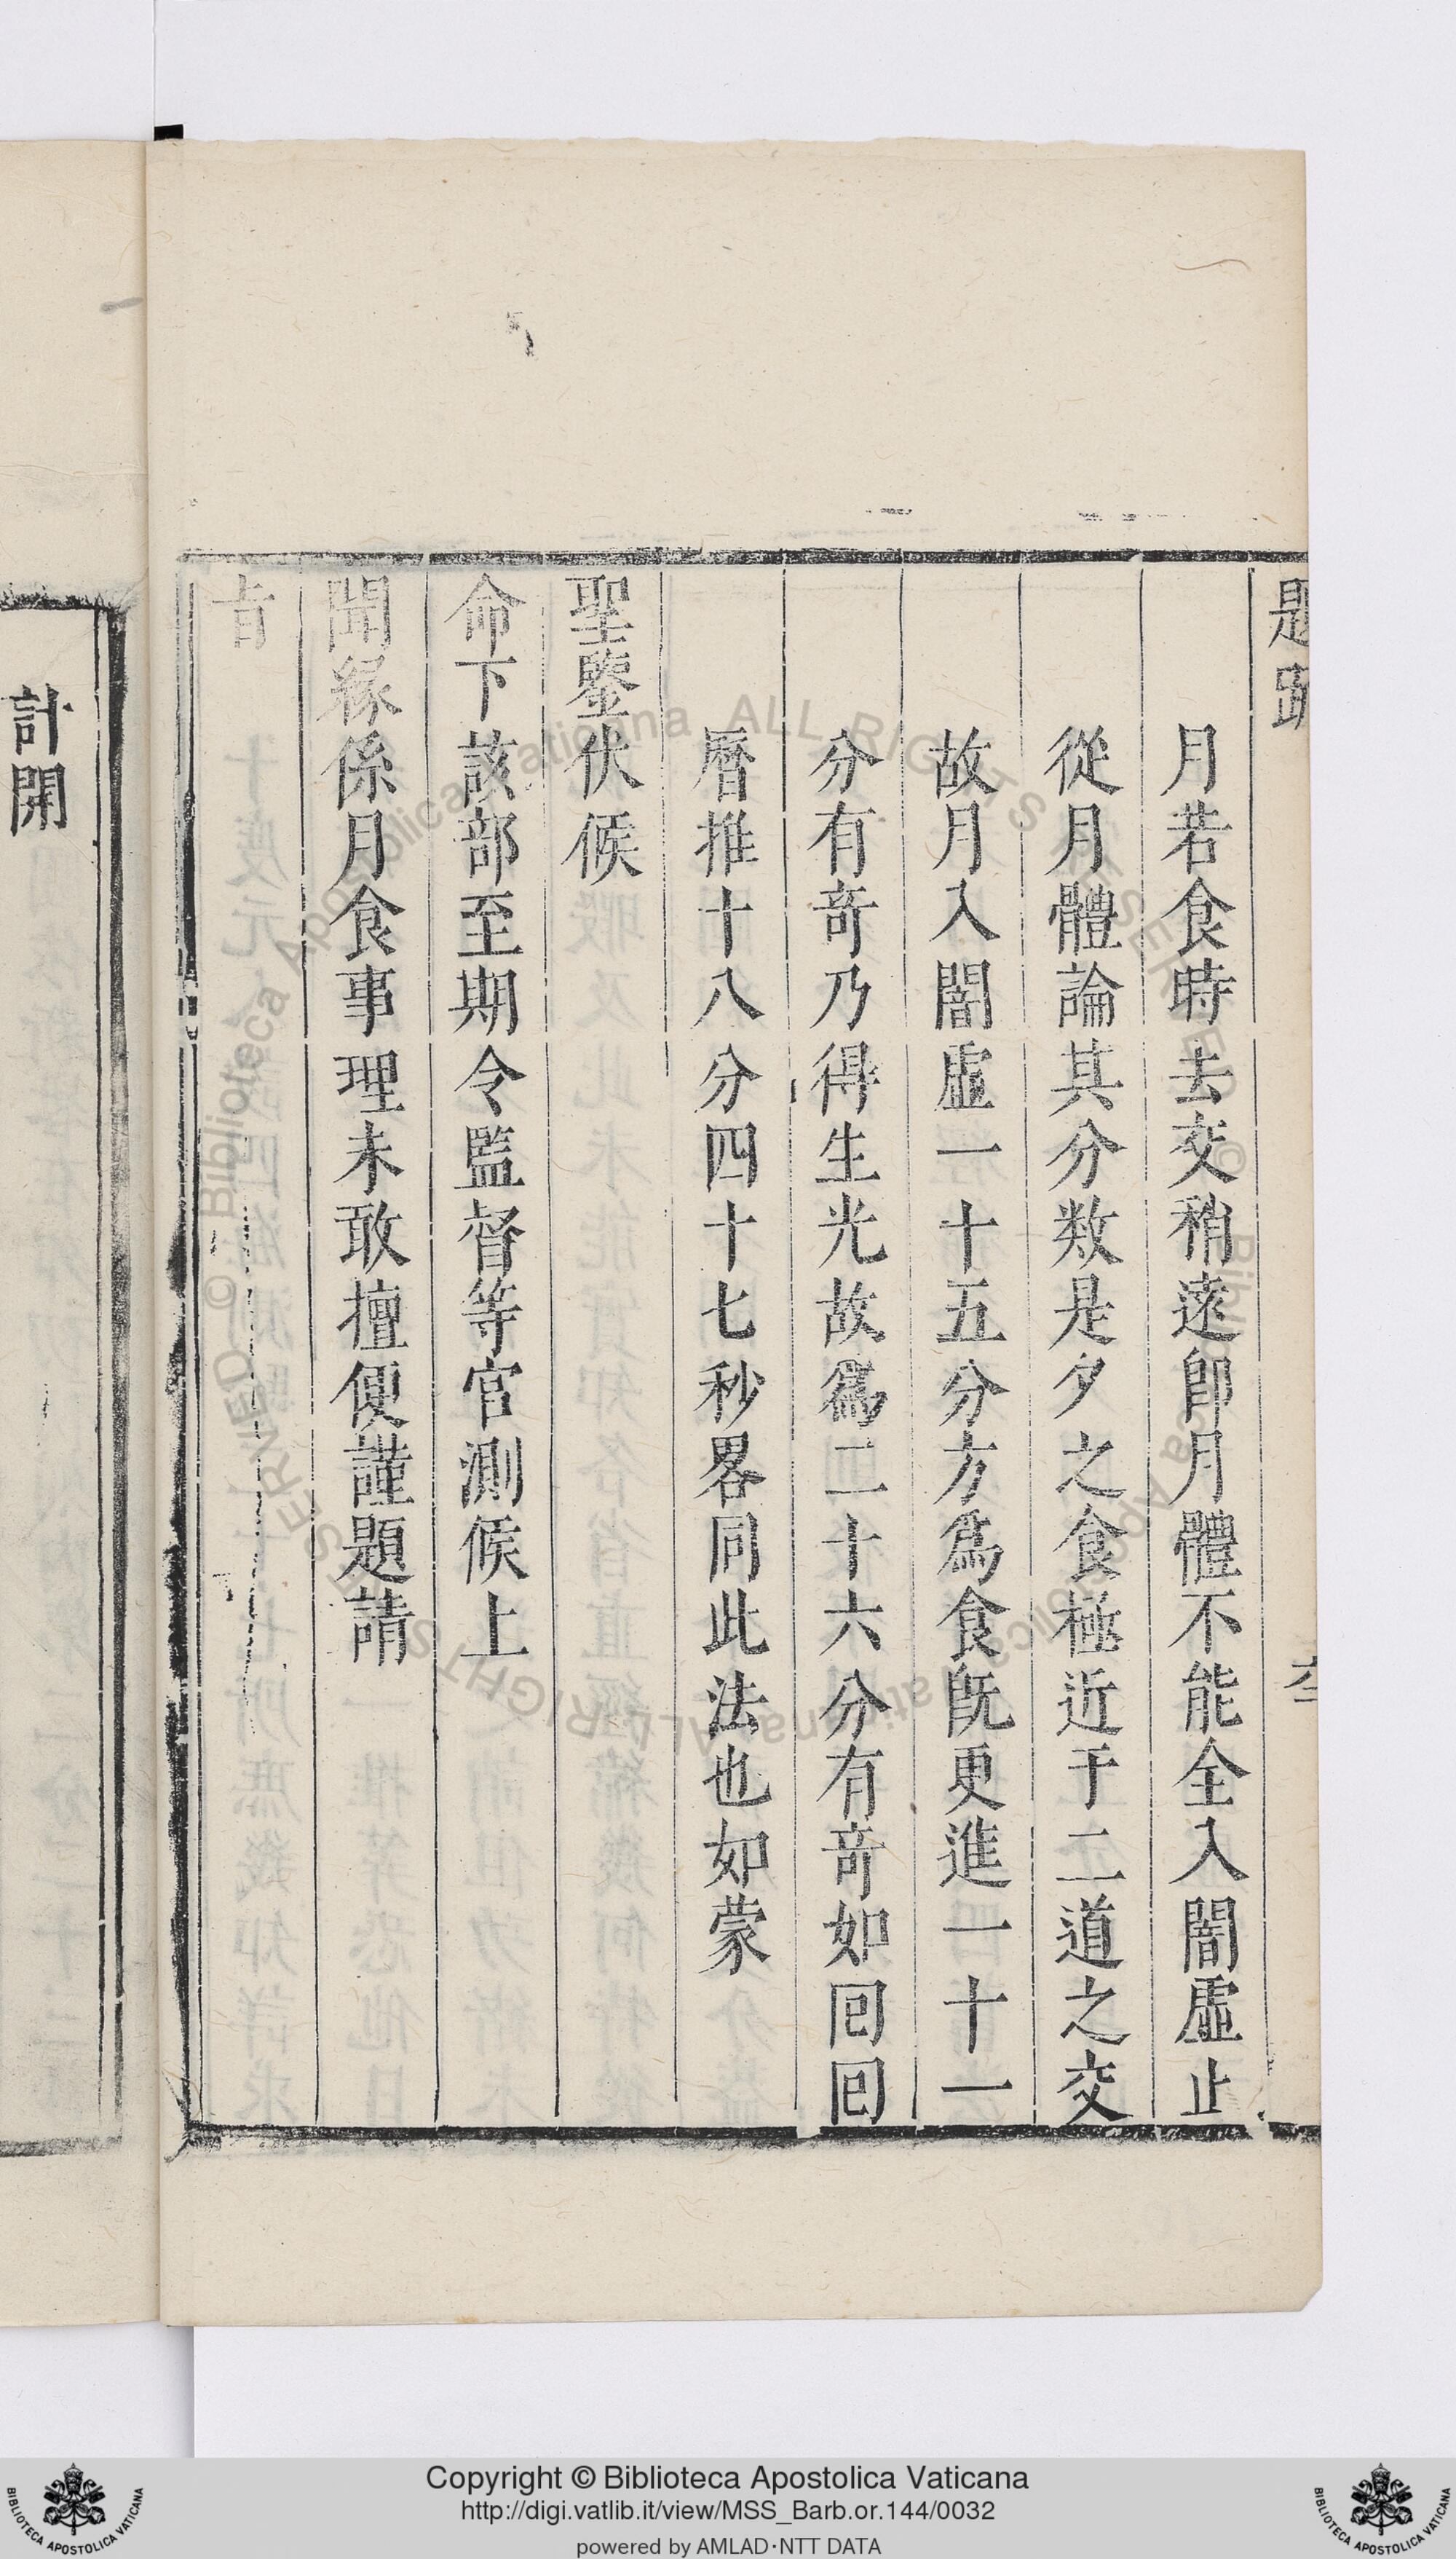 題疏
月若食時去交稍遠卽月體不能全入闇虛止
從月體論其分數是夕之食極近于二道之交
故月入闇虛一十五分方爲食旣更進一十一
分有竒乃得生光故爲二十六分有竒如回回
曆推十八分四十七秒畧同此法也如蒙
聖鑒伏候
命下該部至期令監督等官測候上
聞緣係月食事理未敢擅便謹題請
旨
計開
Copyright © Biblioteca Apostolica Vaticana
http://digi.vatlib.it/view/MSS_Barb.or.144/0032
powered by AMLAD·NTT DATA
BIBLIOTECA APOSTOLICA VATICANA
BIBLIOTECA APOSTOLICA VATICANA